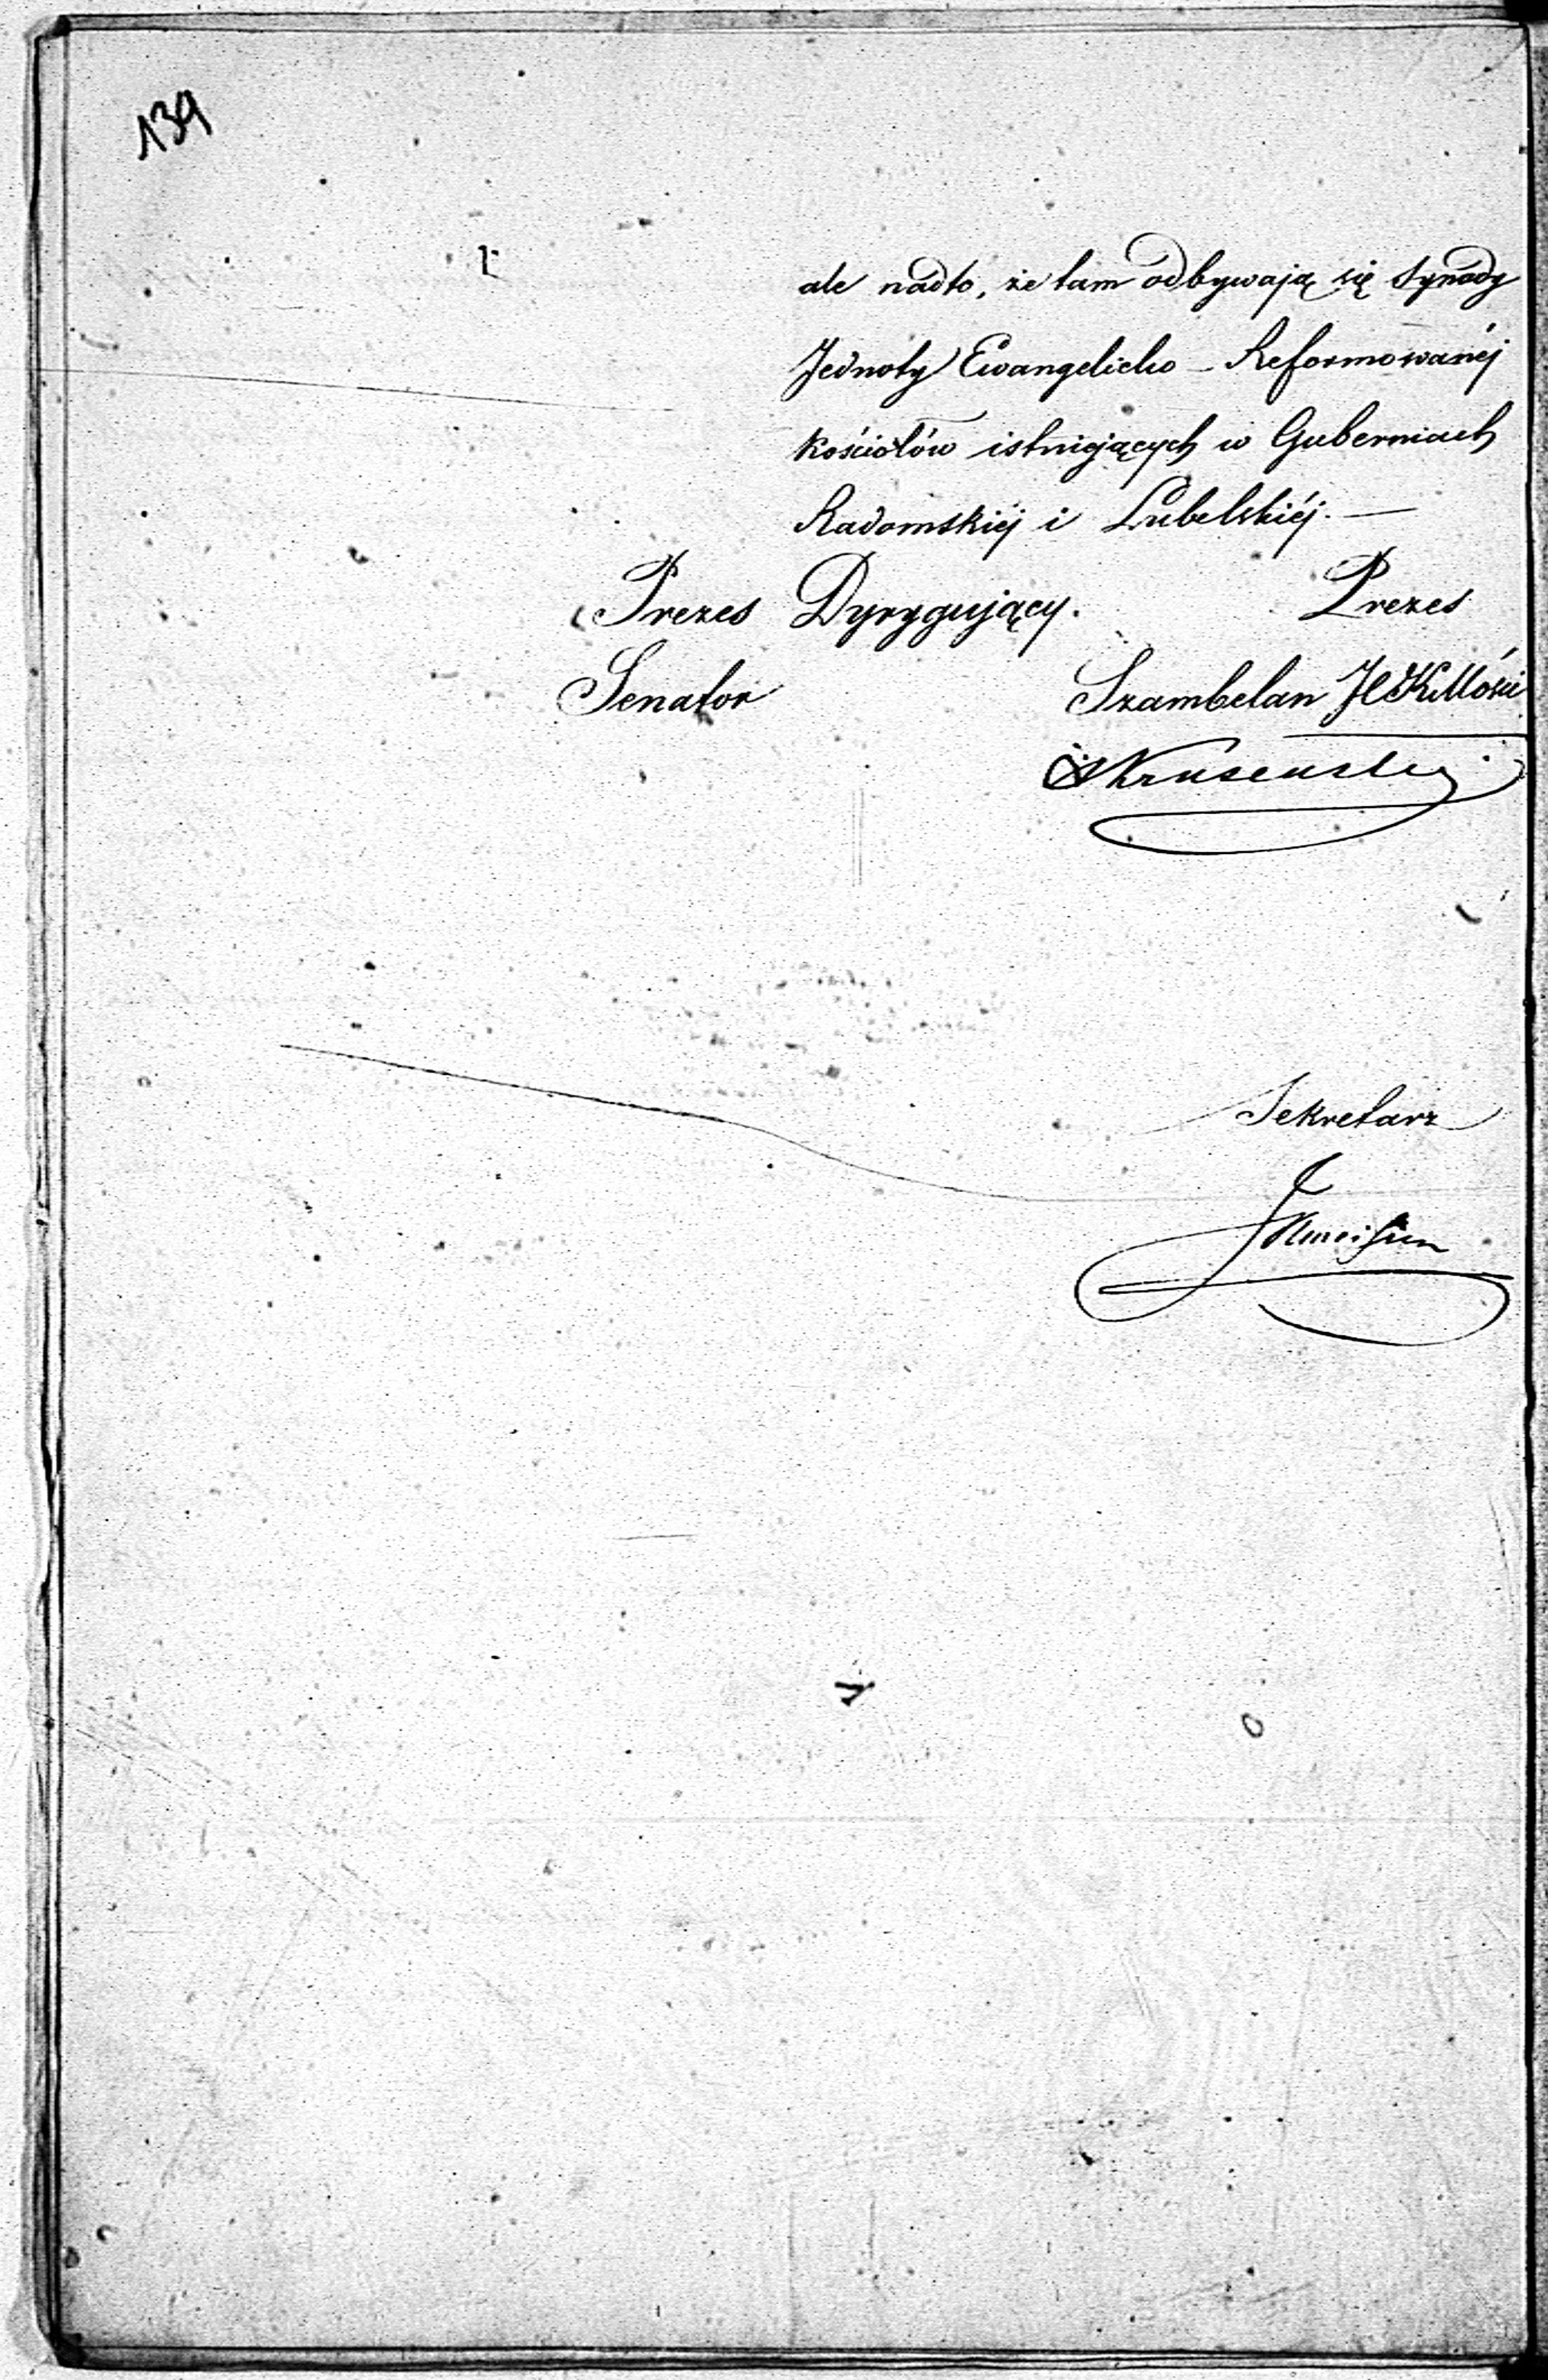 139
ale nadto, że tam odbywają się synody
Jednoty Ewangelicko - Reformowanéj
kościołów istniejących w Guberniach
Radomskiéj i Lubelskiéj. —
Prezes Dyrygujący. Prezes
Senator Szambelan
Sekretarz